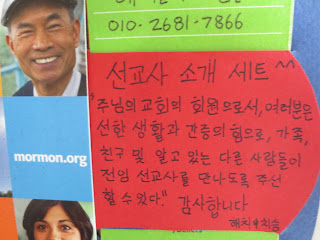 010-2681-7866
선교사 소개 세트 ^^
"주님의 교회의 회원으로서, 여러분은
선한 생활과 간증의 힘으로, 가족,
친구 및 알고 있는 다른 사람들이
전임 선교사를 만나도록 주선
할 수 있다." 감사합니다
mormon.org